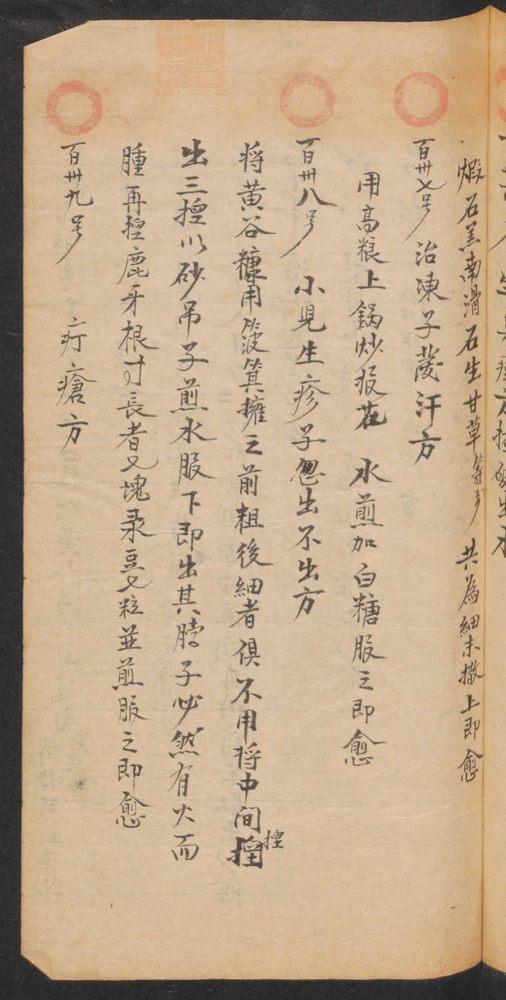 煅石羔南滑石生甘草等分 共為細末撒上即愈
百卅七号 治凍子發汗方
用高粮上鍋炒报花 水煎加白糖服之即愈
百卅八号 小児生疹子忽出不出方
将黄谷糠用簸箕擁之前粗後細者俱不用将中間揑
揑
出三揑以砂吊子煎水服下即出其脖子必然有火而
腫再揑鹿牙根寸長者又塊彔豆七粒並煎服之即愈
百卅九号 疔瘡方